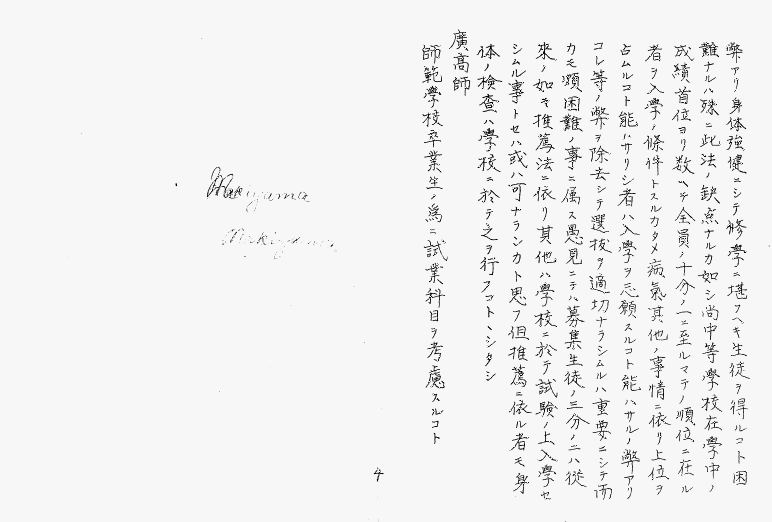 弊アリ身体強健ニシテ修學ニ堪フヘキ生徒ヲ得ルコト困
難ナルハ殊ニ此法ノ缺点ナルカ如シ尚中等學校在學中ノ
成績首位ヨリ数ヘテ全員ノ十分ノ一ニ至ルマテノ順位ニ在ル
者ヲ入學ノ條件トスルカタメ病氣其他ノ事情ニ依リ上位ヲ
占ムルコト能ハサリシ者ハ入學ヲ志願スルコト能ハサルノ弊アリ
コレ等ノ弊ヲ除去シテ選抜ヲ適切ナラシムルハ重要ニシテ而
カモ頗困難ノ事ニ属ス愚見ニテハ募集生徒ノ三分ノ二ハ従
來ノ如キ推薦法ニ依リ其他ハ學校ニ於テ試験ノ上入學セ
シムル事トセハ或ハ可ナランカト思フ但推薦ニ依ル者モ身
体ノ検査ハ學校ニ於テ之ヲ行フコトヽシタシ
廣高師
師範學校卒業生ノ為ニ試業科目ヲ考慮スルコト
4
Makiyama
Makiyama